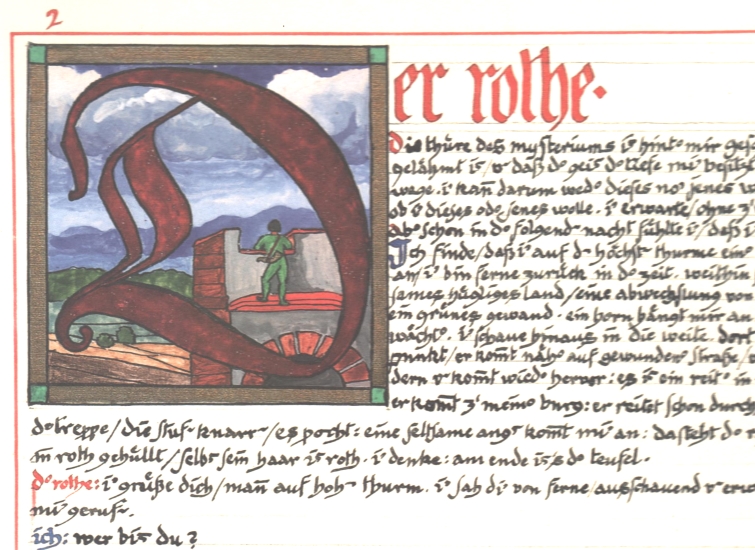 2
Der rothe.
Die thüre des mysteriums i hint° mir
gelähmt is / v daß d° geis d° tiefe mi
wege. i kañ darum wed° dieses no jenes
ob i dieses od° jenes wolle. i erwarte / ohne z'
ab° schon in d° folgend nacht fühlte i / daß i
Ich finde / daß i auf d höchst thurme ein
an / i bin ferne zurück in d° zeit. weithin
sames hügliges land / eine abwechslung von
ein grünes gewand. ein horn hängt mir an
wächt°. i schaue hinaus in die weite. dort
punkt / er kom̄t näh° auf gewunden straße /
dern v kom̄t wied° hervor: es is ein reit° in
er kom̄t z' mein° burg: er reitet schon durch
d° treppe / die stuf knarr / es pocht: eine seltsame angs kom̄t mi an: da steht d° r
in roth gehüllt / selbs sein haar is roth. i denke: am ende is's d° teufel.
d° rothe: i grüße dich / mañ auf hoh thurm. i sah di von ferne / ausschauend v erw
mi geruf.
ich: wer bis du?